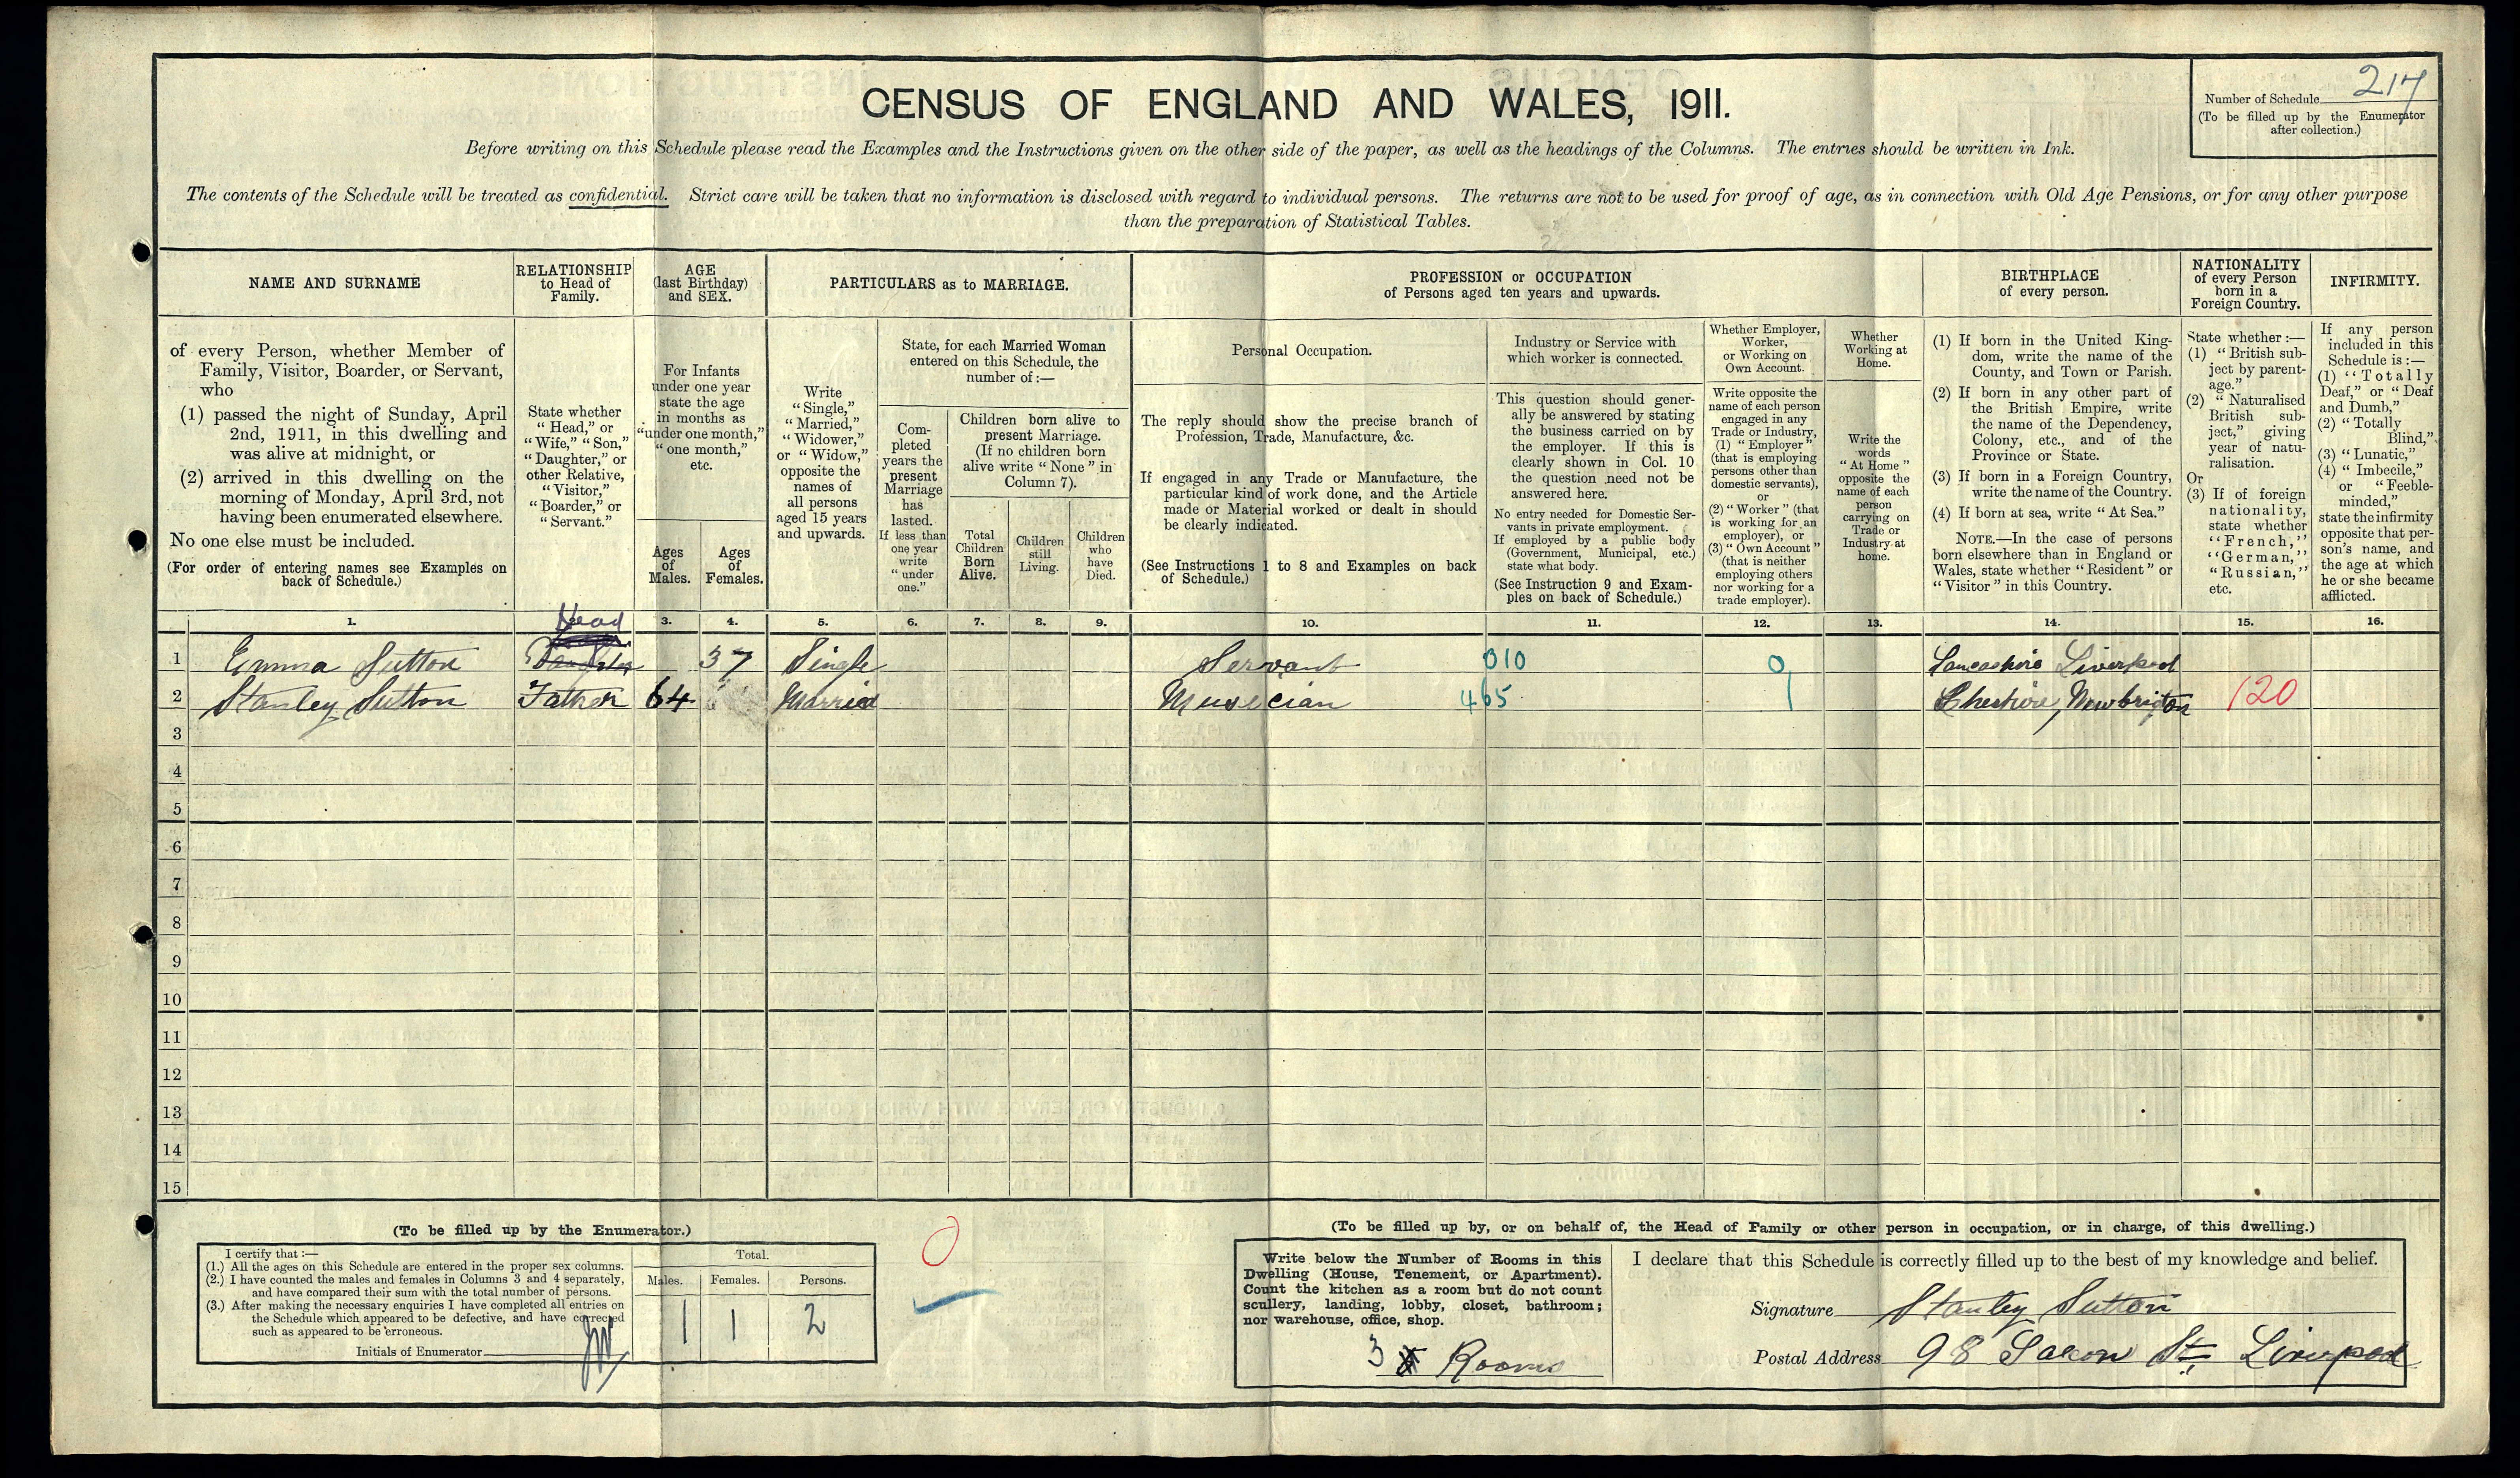 CENSUS OF ENGLAND AND WALES, 1911.
Number of Schedule 217
(To be filled up by the Enumerator
after collection.)
Before writing on this Schedule please read the Examples and the Instructions given on the other side of the paper, as well as the headings of the Columns. The entries should be written in Ink.
The contents of the Schedule will be treated as confidential. Strict care will be taken that no information is disclosed with regard to individual persons. The returns are not to be used for proof of age, as in connection with Old Age Pensions, or for any other purpose
than the preparation of Statistical Tables.
NAME AND SURNAME
of every Person, whether Member of
Family, Visitor, Boarder, or Servant,
who
(1) passed the night of Sunday, April
2nd, 1911, in this dwelling and
was alive at midnight, or
(2) arrived in this dwelling on the
morning of Monday, April 3rd, not
having been enumerated elsewhere.
No one else must be included.
(For order of entering names see Examples on
back of Schedule.)
RELATIONSHIP
to Head of
Family.
State whether
"Head," or
"Wife," "Son,"
"Daughter," or
other Relative,
"Visitor,"
"Boarder," or
"Servant."
AGE
(last Birthday)
and SEX.
For Infants
under one year
state the age
in months as
"under one month,"
"one month,"
etc.
Ages
of
Males.
Ages
of
Females.
PARTICULARS as to MARRIAGE.
Write
"Single,"
"Married,"
"Widower,"
or "Widow,"
opposite the
names of
all persons
aged 15 years
and upwards.
State, for each Married Woman
entered on this Schedule, the
number of :—
Com-
pleted
years the
present
Marriage
has
lasted.
If less than
one year
write
"under
one."
Children born alive to
present Marriage.
(If no children born
alive write "None" in
Column 7).
Total
Children
Born
Alive.
Children
still
Living.
Children
who
have
Died.
PROFESSION or OCCUPATION
of Persons aged ten years and upwards.
Personal Occupation.
The reply should show the precise branch of
Profession, Trade, Manufacture, &c.
If engaged in any Trade or Manufacture, the
particular kind of work done, and the Article
made or Material worked or dealt in should
be clearly indicated.
(See Instructions 1 to 8 and Examples on back
of Schedule.)
Industry or Service with
which worker is connected.
This question should gener-
ally be answered by stating
the business carried on by
the employer. If this is
clearly shown in Col. 10
the question need not be
answered here.
No entry needed for Domestic Ser-
vants in private employment.
If employed by a public body
(Government, Municipal, etc.)
state what body.
(See Instruction 9 and Exam-
ples on back of Schedule.)
Whether Employer,
Worker,
or Working on
Own Account.
Write opposite the
name of each person
engaged in any
Trade or Industry,
(1) "Employer"
(that is employing
persons other than
domestic servants),
or
(2) "Worker" (that
is working for an
employer), or
(3) "Own Account"
(that is neither
employing others
nor working for a
trade employer).
Whether
Working at
Home.
Write the
words
"At Home"
opposite the
name of each
person
carrying on
Trade or
Industry at
home.
BIRTHPLACE
of every person.
(1) If born in the United King-
dom, write the name of the
County, and Town or Parish.
(2) If born in any other part of
the British Empire, write
the name of the Dependency,
Colony, etc., and of the
Province or State.
(3) If born in a Foreign Country,
write the name of the Country.
(4) If born at sea, write "At Sea."
NOTE.—In the case of persons
born elsewhere than in England or
Wales, state whether "Resident" or
"Visitor" in this Country.
NATIONALITY
of every Person
born in a
Foreign Country.
State whether :—
(1) "British sub-
ject by parent-
age."
(2) "Naturalised
British sub-
ject," giving
year of natu-
ralisation.
Or
(3) If of foreign
nationality,
state whether
"French,"
"German,"
"Russian,"
etc.
INFIRMITY.
If any person
included in this
Schedule is :—
(1) "Totally
Deaf," or "Deaf
and Dumb,"
(2) "Totally
Blind,"
(3) "Lunatic,"
(4) "Imbecile,"
or "Feeble-
minded,"
state the infirmity
opposite that per-
son's name, and
the age at which
he or she became
afflicted.
1. 3. 4. 5. 6. 7. 8. 9. 10. 11. 12. 13. 14. 15. 16.
Head
1 Emma Sutton Daughter 37 Single Servant 010 0 Lancashire Liverpool
2 Stanley Sutton Father 64 Married Musician 465 1 Cheshire, Newbrigton 120
3
4
5
6
7
8
9
10
11
12
13
14
15
(To be filled up by the Enumerator.)
I certify that :—
(1.) All the ages on this Schedule are entered in the proper sex columns.
(2.) I have counted the males and females in Columns 3 and 4 separately,
and have compared their sum with the total number of persons.
(3.) After making the necessary enquiries I have completed all entries on
the Schedule which appeared to be defective, and have corrected
such as appeared to be erroneous.
Initials of Enumerator JW
Total.
Males. Females. Persons.
1 1 2
0
(To be filled up by, or on behalf of, the Head of Family or other person in occupation, or in charge, of this dwelling.)
Write below the Number of Rooms in this
Dwelling (House, Tenement, or Apartment).
Count the kitchen as a room but do not count
scullery, landing, lobby, closet, bathroom;
nor warehouse, office, shop.
3 Rooms
I declare that this Schedule is correctly filled up to the best of my knowledge and belief.
Signature Stanley Sutton
Postal Address 98 Saxon St, Liverpool